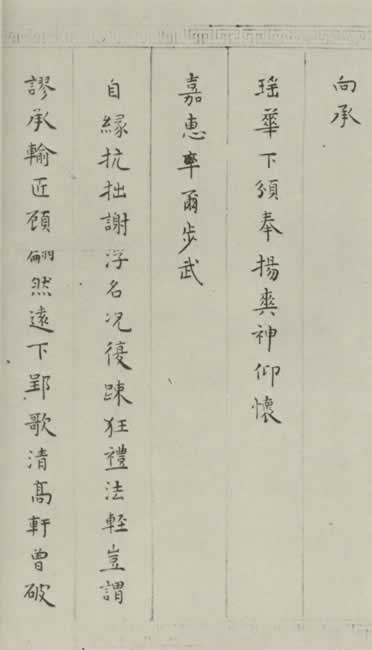 向承
瑶華下頒奉揚爽神仰懷
嘉惠率爾步武
自緣抗拙謝浮名况復踈狂禮法輕豈謂
謬承輸匠顧翩然遠下郢歌清髙軒曾破